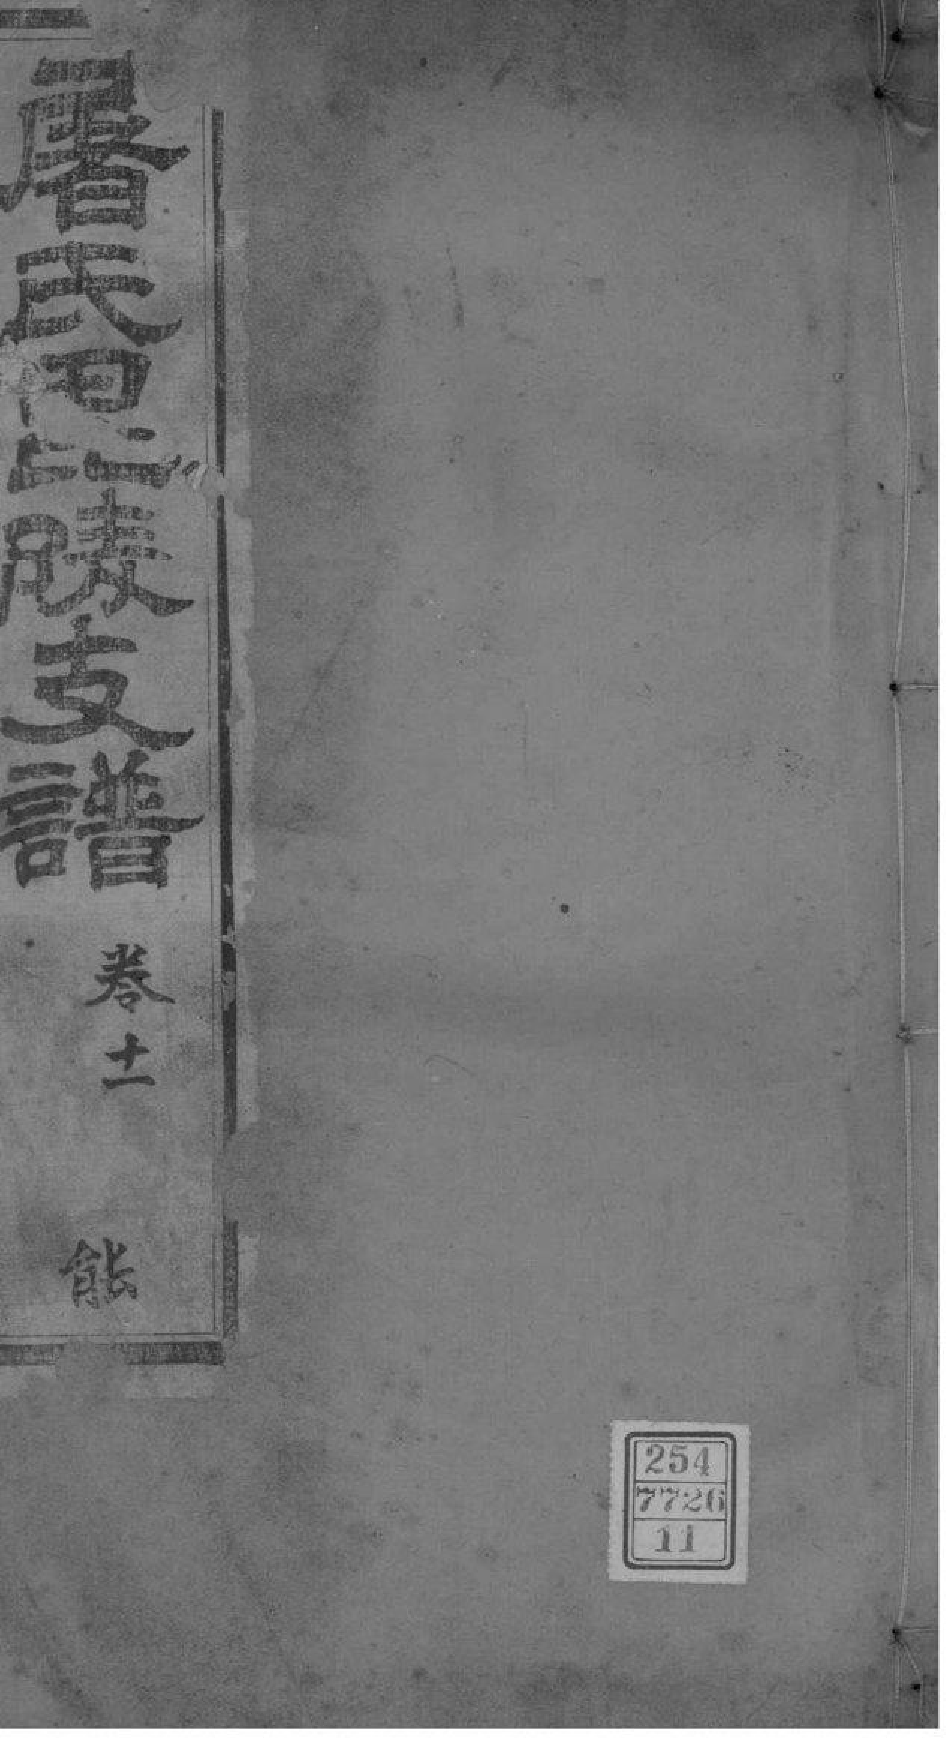 屠氏毘陵支譜
卷十一
能
254
7726
11